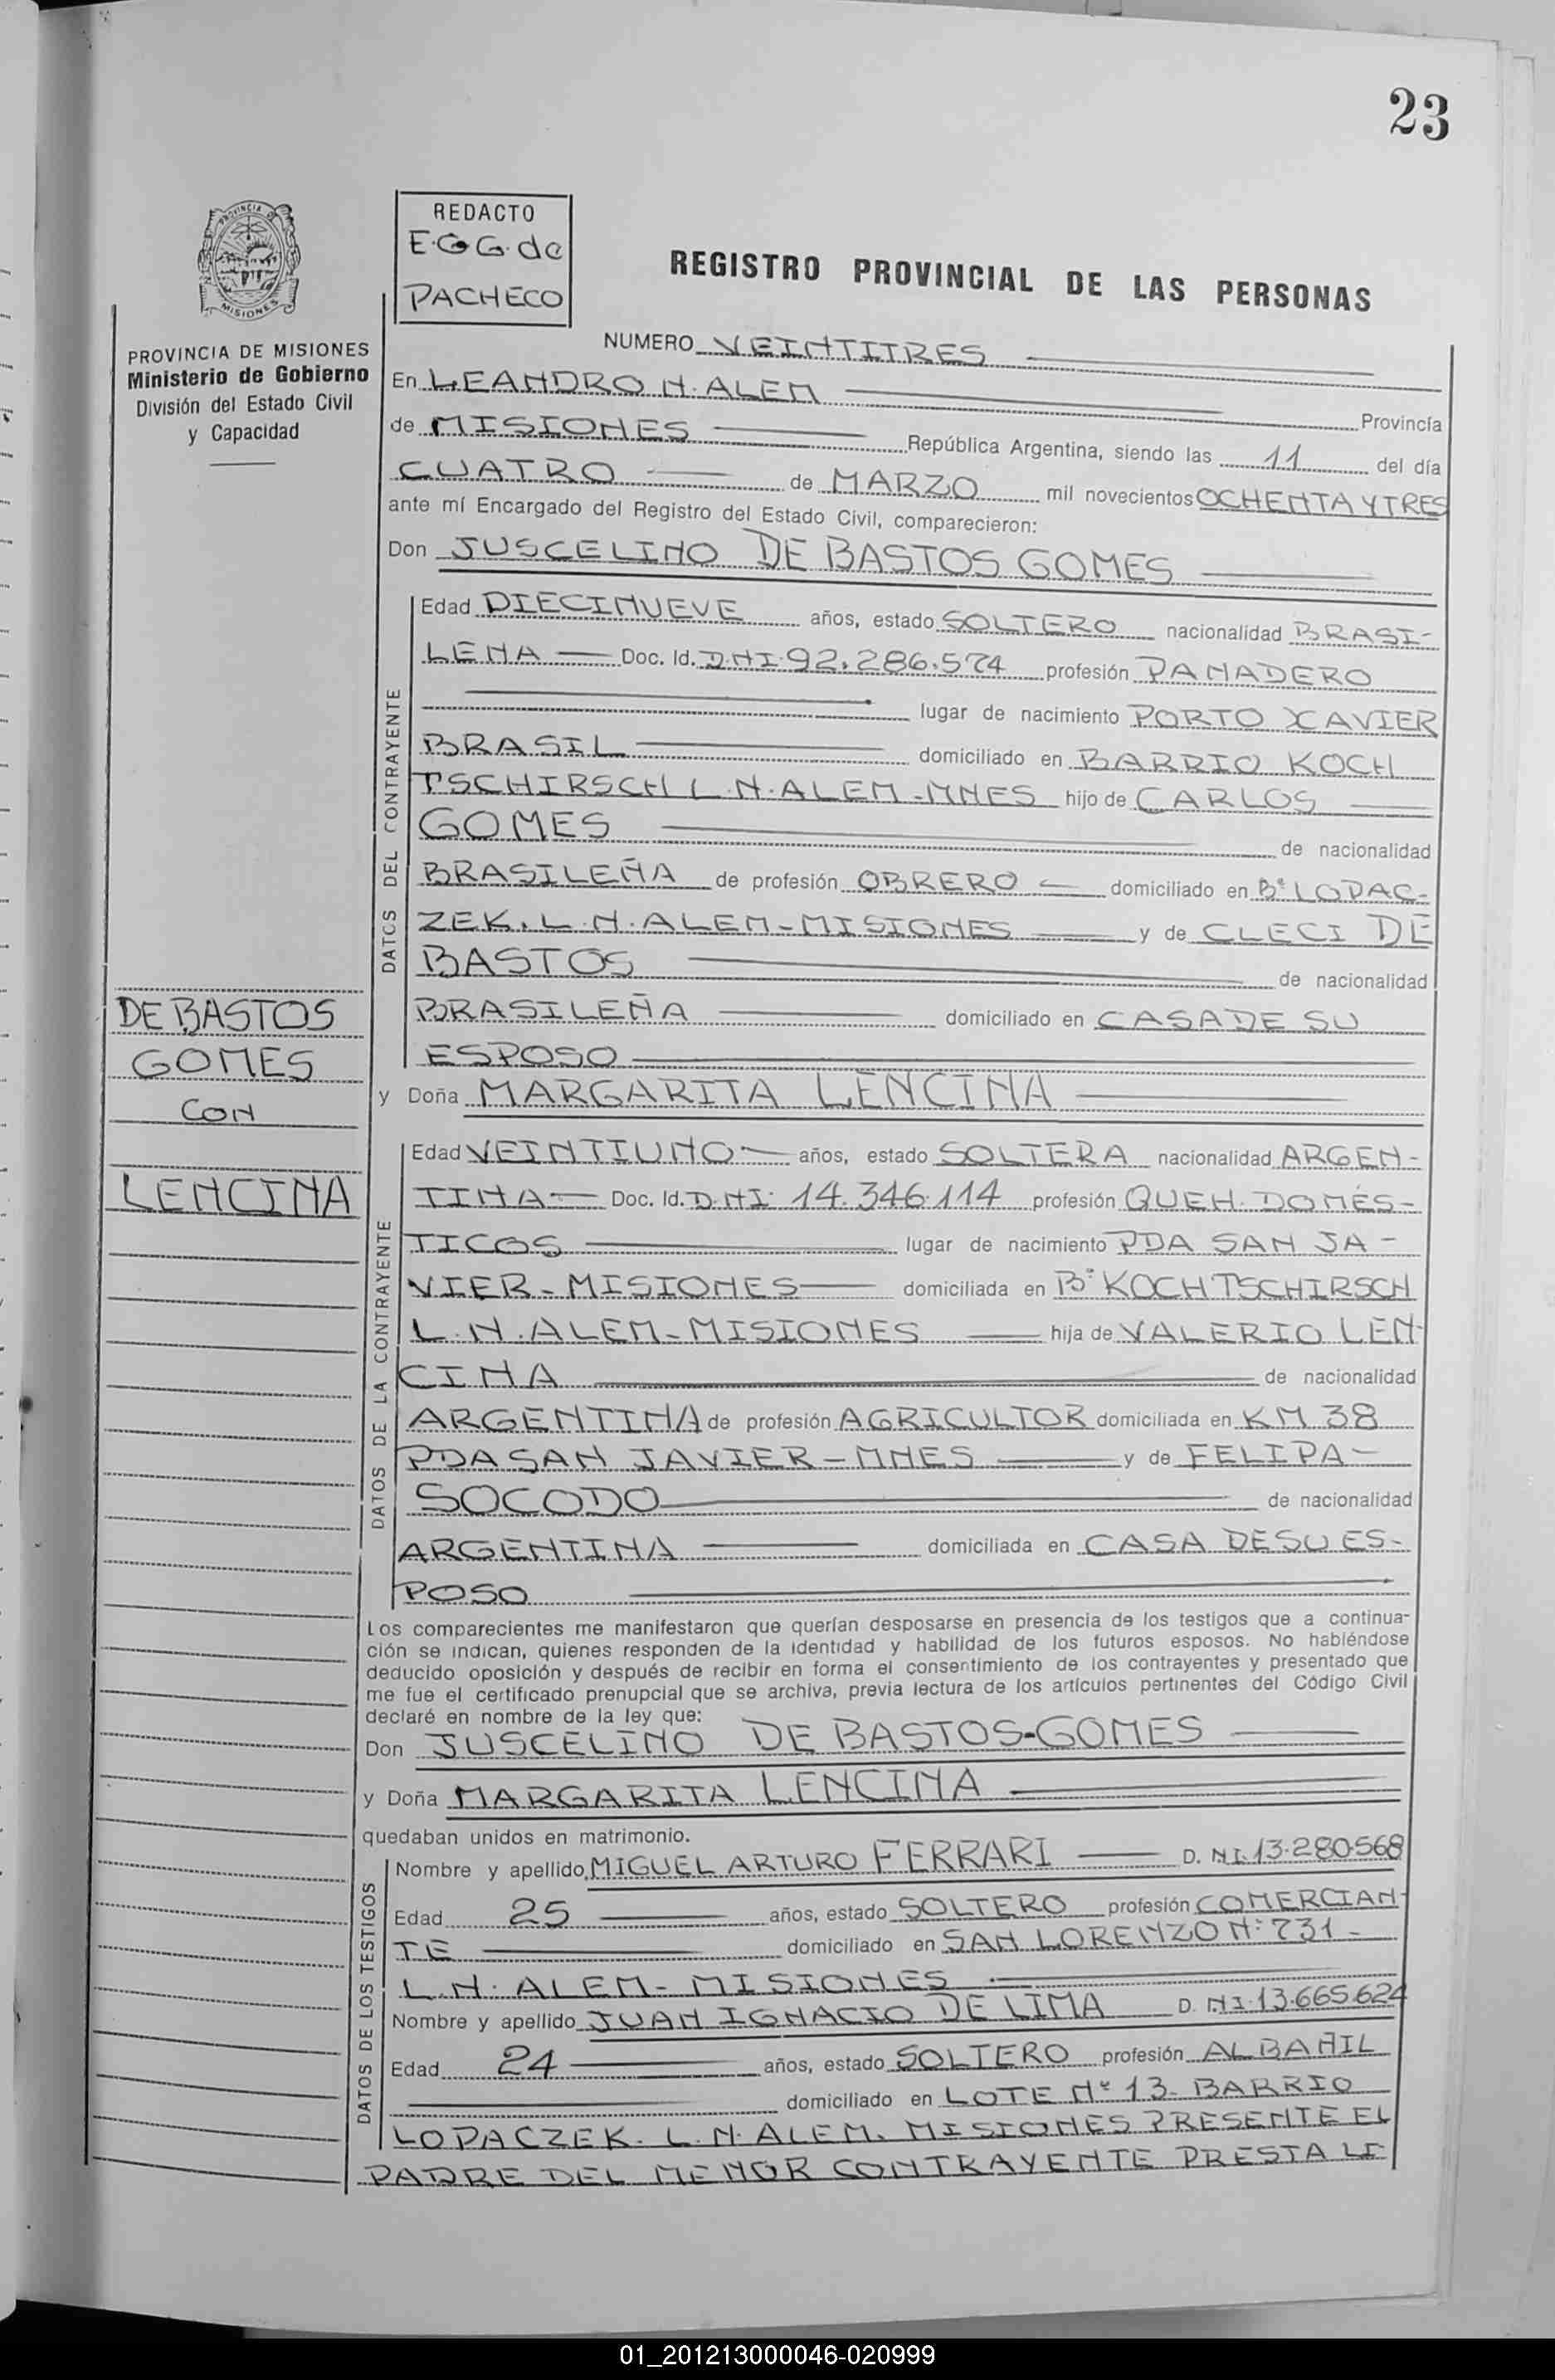 23
REDACTO
E.G G. de
PACHECO
REGISTRO PROVINCIAL DE LAS PERSONAS
PROVINCIA DE MISIONES
Ministerio de Gobierno
División del Estado Civil
y Capacidad
NUMERO VEINTITRES
En LEANDRO N. ALEM Provincia
de MISIONES República Argentina, siendo las 11 del día
CUATRO de MARZO mil novecientos OCHENTA Y TRES
ante mí Encargado del Registro del Estado Civil, comparecieron:
Don JUSCELINO DE BASTOS GOMES
DATOS DEL CONTRAYENTE
Edad DIECINUEVE años, estado SOLTERO nacionalidad BRASI-
LEÑA Doc. Id. D.N.I. 92.286.574 profesión PANADERO
lugar de nacimiento PORTO XAVIER
BRASIL domiciliado en BARRIO KOCH
TSCHIRSCH L.N.ALEM-MNES hijo de CARLOS
GOMES de nacionalidad
BRASILEÑA de profesión OBRERO domiciliado en B° LOPAC-
ZEK. L.N.ALEM-MISIONES y de CLECI DE
BASTOS de nacionalidad
BRASILEÑA domiciliado en CASA DE SU
ESPOSO
DE BASTOS
GOMES
CON
LENCINA
y Doña MARGARITA LENCINA
DATOS DE LA CONTRAYENTE
Edad VEINTIUNO años, estado SOLTERA nacionalidad ARGEN-
TINA Doc. Id. D.N.I. 14.346.114 profesión QUEH. DOMÉS-
TICOS lugar de nacimiento PDA SAN JA-
VIER-MISIONES domiciliada en B° KOCH TSCHIRSCH
L.N.ALEM-MISIONES hija de VALERIO LEN-
CINA de nacionalidad
ARGENTINA de profesión AGRICULTOR domiciliada en KM 38
PDA SAN JAVIER-MNES y de FELIPA
SOCODO de nacionalidad
ARGENTINA domiciliada en CASA DE SU ES-
POSO
Los comparecientes me manifestaron que querían desposarse en presencia de los testigos que a continua-
ción se indican, quienes responden de la identidad y habilidad de los futuros esposos. No habiéndose
deducido oposición y después de recibir en forma el consentimiento de los contrayentes y presentado que
me fue el certificado prenupcial que se archiva, previa lectura de los artículos pertinentes del Código Civil
declaré en nombre de la ley que:
Don JUSCELINO DE BASTOS-GOMES
y Doña MARGARITA LENCINA
quedaban unidos en matrimonio.
DATOS DE LOS TESTIGOS
Nombre y apellido MIGUEL ARTURO FERRARI D.N.I. 13.280.568
Edad 25 años, estado SOLTERO profesión COMERCIAN-
TE domiciliado en SAN LORENZO N° 731-
L.N. ALEM-MISIONES
Nombre y apellido JUAN IGNACIO DE LIMA D.N.I. 13.665.624
Edad 24 años, estado SOLTERO profesión ALBAÑIL
domiciliado en LOTE N° 13- BARRIO
LOPACZEK. L.N. ALEM. MISIONES PRESENTE EL
PADRE DEL MENOR CONTRAYENTE PRESTA LE
01_201213000046-020999